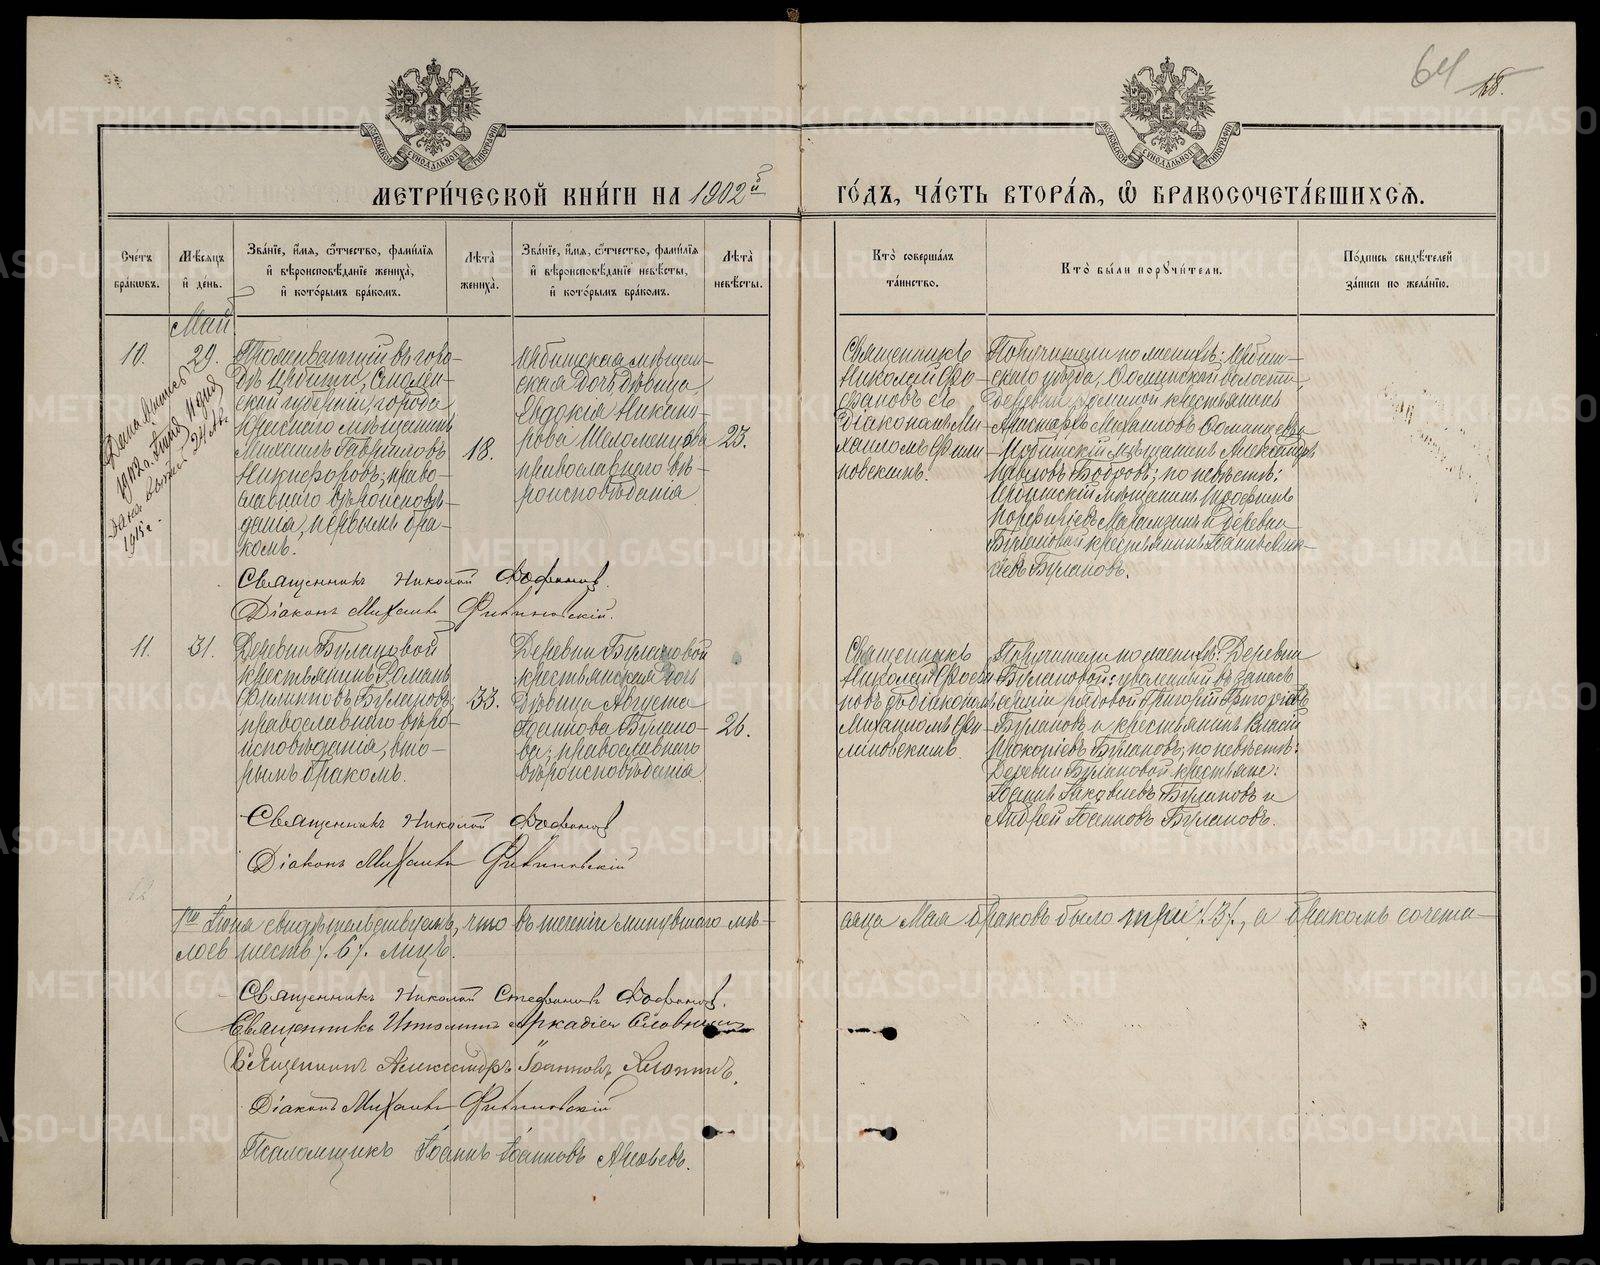 64
МЕТРИ́ЧЕСКОЙ КНИ́ГИ НА 1902й
ГО́ДЪ, ЧА́СТЬ ВТОРА́Я, Ѿ БРАКОСОЧЕТА́ВШИХСЯ.
Сче́тъ бра́кѡвъ.
Мѣ́сяцъ и҆ де́нь.
Зва́нїе, и҆́мя, ѻ҆́тчество, фами́лїя
и҆ вѣроисповѣ́данїе жениха̀,
и҆ кото́рымъ бра́комъ.
Лѣ́та жениха̀.
Зва́нїе, и҆́мя, ѻ҆́тчество, фами́лїя
и҆ вѣроисповѣ́данїе невѣ́сты,
и҆ кото́рымъ бра́комъ.
Лѣ́та невѣ́сты.
Кто̀ соверша́лъ та́инство.
Кто̀ бы́ли поручи́тели.
По́дпись свидѣ́телей за́писи по жела́нїю.
Май
10.
29.
Проживающій въ горо-
дѣ Ирбити, Смолен-
ской губерніи, города
Краснаго мѣщанинъ
Михаилъ Гавриловъ
Никифоровъ; право-
славнаго вѣроисповѣ-
данія, первымъ бра-
комъ.
18.
Ирбитская мѣщан-
ская дочь дѣвица
Евдокія Никано-
рова Шеломенцева
православнаго вѣ-
роисповѣданія
23.
Священникъ
Николай Фо-
фановъ съ
Діакономъ Ми-
хаиломъ Фили-
новскимъ.
Поручители по женихѣ: Ирбит-
скаго уѣзда, Фоминской волости,
деревни Фоминой крестьянинъ
Аристархъ Михаиловъ Фоминцевъ
Ирбитскій мѣщанинъ Александръ
Павловъ Бобровъ; по невѣстѣ:
Ирбитскій мѣщанинъ
и деревни
Булановой крестьянинъ
Булановъ.
Дана выпись
1912 г. Іюня 11 дня
Дана выпись 24 Авг.
1915 г.
Священникъ Николай Фофановъ.
Діаконъ Михаилъ Филиновскій.
11.
31.
Деревни Булановой
крестьянинъ Романъ
Филипповъ Булановъ;
православнаго вѣро-
исповѣданія, вто-
рымъ бракомъ.
33.
Деревни Булановой
крестьянская дочь
дѣвица Августа
Іоаннова Булано-
ва; православнаго
вѣроисповѣданія
26.
Священникъ
Николай Фофа-
новъ съ діакономъ
Михаиломъ Фи-
линовскимъ.
Поручители по женихѣ: Деревни
Булановой: уволенный въ запасъ
арміи рядовой Григорій Григорьевъ
Булановъ и крестьянинъ Власій
Прокопіевъ Булановъ; по невѣстѣ:
Деревни Булановой крестьяне:
Іоаннъ Іаковлевъ Булановъ и
Андрей Іоанновъ Булановъ.
Священникъ Николай Фофановъ
Діаконъ Михаилъ Филиновскій
12
1го Іюня свидѣтельствуемъ, что въ теченіи минувшаго мѣ-
сяца Мая браковъ было три /.3/., а бракомъ сочета-
лось шесть /.6/. лицъ.
Священникъ Николай Стефановъ Фофановъ.
Священникъ Ипполитъ Аркадіевъ Словцовъ
Священникъ Александръ Іоанновъ Хлопинъ.
Діаконъ Михаилъ Филиновскій
Псаломщикъ Іоаннъ Іоанновъ